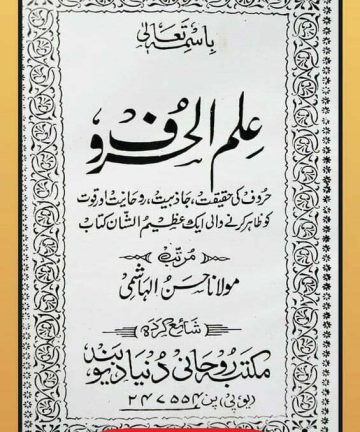 باسمہٖ تعالیٰ
علم الحروف
حروف کی حقیقت، جاذبیت، روحانیت اور قوت
کو ظاہر کرنے والی ایک عظیم الشان کتاب
مرتب
مولانا حسن الہاشمی
شائع کردہ
مکتبہ روحانی دنیا دیوبند
(یوپی) پن ۲۴۷۵۵۴